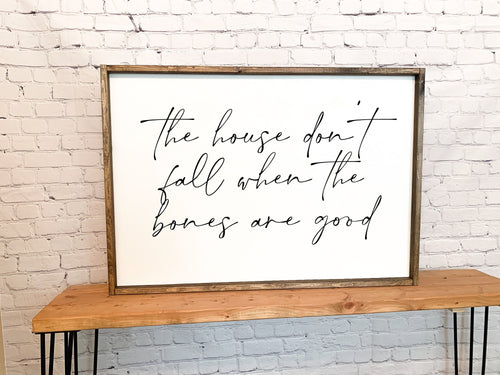 the house don't
fall when the
bones are good